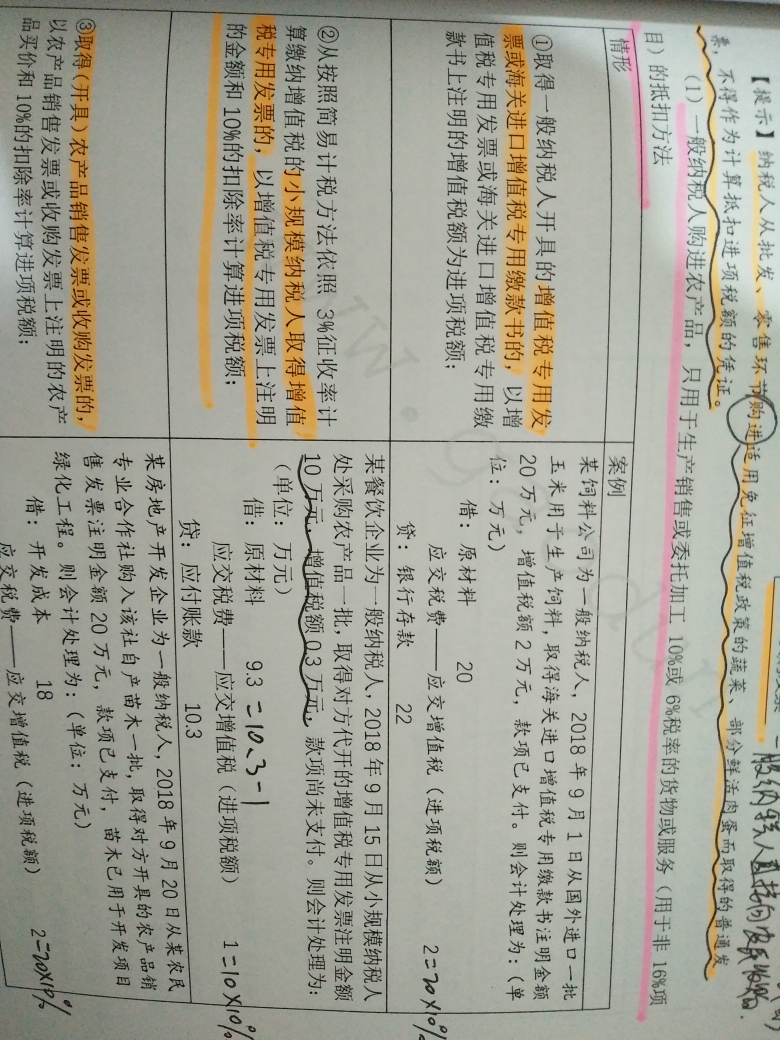 【提示】纳税人从批发、零售环节购进适用免征增值税政策的蔬菜、部分鲜活肉蛋而取得的普通发
票，不得作为计算抵扣进项税额的凭证。
（1）一般纳税人购进农产品，只用于生产销售或委托加工 10%或 6%税率的货物或服务（用于非 16%项
目）的抵扣方法
情形
案例
①取得一般纳税人开具的增值税专用发
票或海关进口增值税专用缴款书的，以增
值税专用发票或海关进口增值税专用缴
款书上注明的增值税额为进项税额；
某饲料公司为一般纳税人，2018 年 9 月 1 日从国外进口一批
玉米用于生产饲料，取得海关进口增值税专用缴款书注明金额
20 万元，增值税额 2 万元，款项已支付。则会计处理为：（单
位：万元）
借：原材料 20
应交税费——应交增值税（进项税额） 2=20×10%
贷：银行存款 22
②从按照简易计税方法依照 3%征收率计
算缴纳增值税的小规模纳税人取得增值
税专用发票的，以增值税专用发票上注明
的金额和 10%的扣除率计算进项税额；
某餐饮企业为一般纳税人，2018 年 9 月 15 日从小规模纳税人
处采购农产品一批，取得对方代开的增值税专用发票注明金额
10 万元，增值税额 0.3 万元，款项尚未支付。则会计处理为：
（单位：万元）
借：原材料 9.3 =10.3-1
应交税费——应交增值税（进项税额） 1=10×10%
贷：应付账款 10.3
③取得（开具）农产品销售发票或收购发票的，
以农产品销售发票或收购发票上注明的农产
品买价和 10%的扣除率计算进项税额；
某房地产开发企业为一般纳税人，2018 年 9 月 20 日从某农民
专业合作社购入该社自产苗木一批，取得对方开具的农产品销
售发票注明金额 20 万元，款项已支付，苗木已用于开发项目
绿化工程。则会计处理为：（单位：万元）
借：开发成本 18
应交税费——应交增值税（进项税额） 2=20×10%